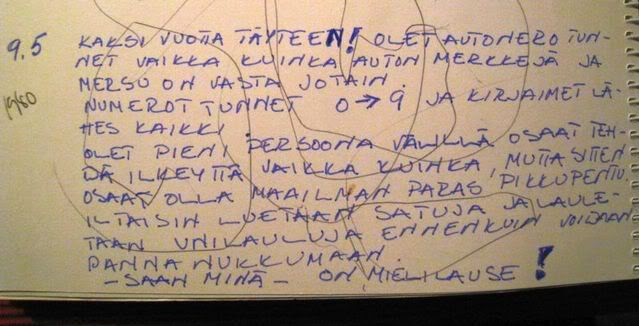 9.5 KAKSI VUOTTA TÄYTEEN! OLET AUTONERO TUN-
1980 NET VAIKKA KUINKA AUTON MERKKEJÄ JA
MERSU ON VASTA JOTAIN.
NUMEROT TUNNET 0 → 9 JA KIRJAIMET LÄ-
HES KAIKKI.
OLET PIENI PERSOONA VÄLILLÄ OSAAT TEH-
DÄ ILKEYTTÄ VAIKKA KUINKA, MUTTA SITTEN
OSAAT OLLA MAAILMAN PARAS PIKKUPENTU.
ILTAISIN LUETAAN SATUJA JA LAULE-
TAAN UNILAULUJA ENNENKUIN VOIDAAN
PANNA NUKKUMAAN.
- SAAN MINÄ - ON MIELILAUSE!